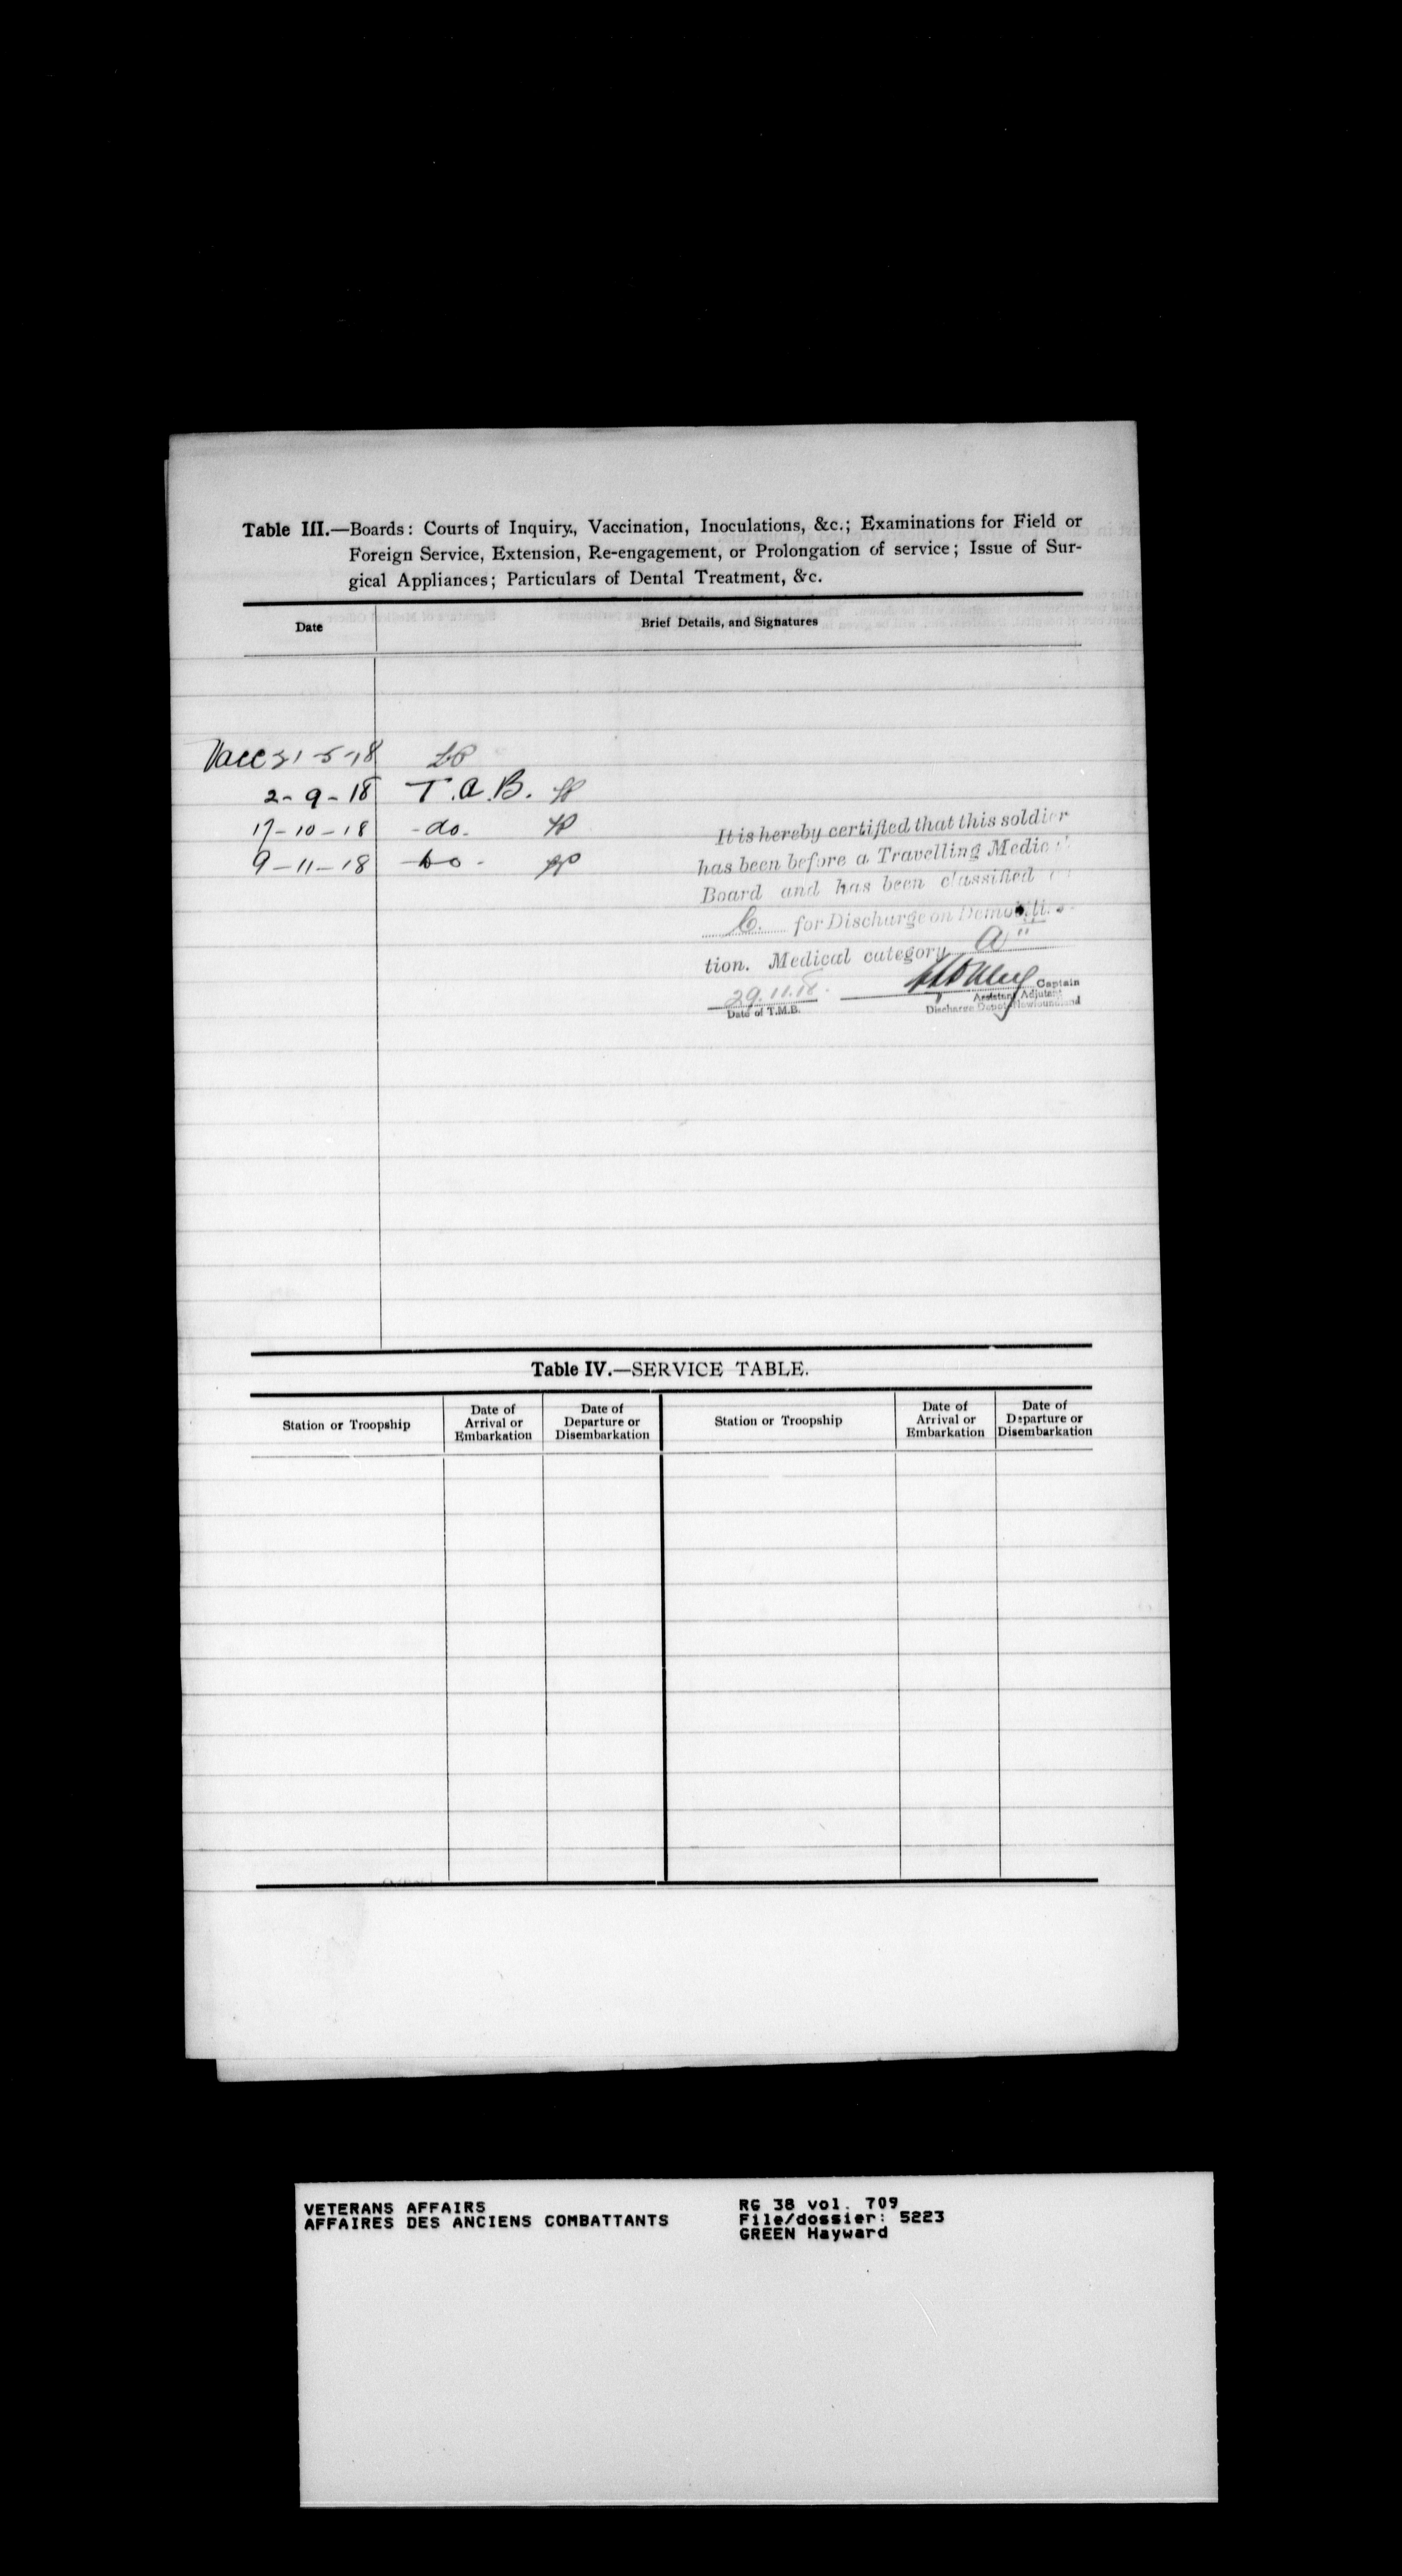 Table III.—Boards: Courts of Inquiry., Vaccination, Inoculations, &c.; Examinations for Field or
Foreign Service, Extension, Re-engagement, or Prolongation of service; Issue of Sur-
gical Appliances; Particulars of Dental Treatment, &c.
Date
Brief Details, and Signatures
Vacc 31-5-18
2-9-18 T.A.B.
17-10-18 -do-
9-11-18 -do-
It is hereby certified that this soldier
has been before a Travelling Medic
Board and has been classified
for Discharge on Demobili
tion. Medical category A
29.11.18.
Date of T.M.B.
Captain
Assistant Adjutant
Discharge Depot, Newfoundland
Table IV.—SERVICE TABLE.
Station or Troopship
Date of
Arrival or
Embarkation
Date of
Departure or
Disembarkation
Station or Troopship
Date of
Arrival or
Embarkation
Date of
Departure or
Disembarkation
VETERANS AFFAIRS
AFFAIRES DES ANCIENS COMBATTANTS
RG 38 vol. 709
File/dossier: 5223
GREEN Hayward